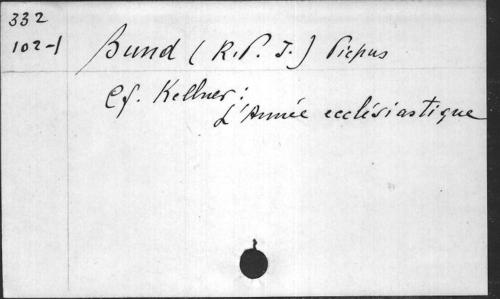 332
102-1
Bund (R.P. J.) Picpus
Cf. Kellner:
L'Année ecclésiastique